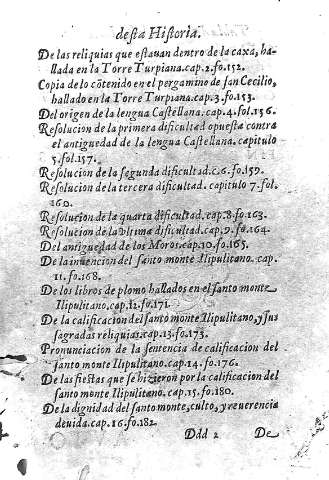 desta Historia.
De las reliquias que estauan dentro de la caxa, ha-
llada en la Torre Turpiana. cap. 2. fo. 152.
Copia de lo cõtenido en el pergamino de san Cecilio,
hallado en la Torre Turpiana. cap. 3. fo. 153.
Del origen de la lengua Castellana. cap. 4. fol. 156.
Resolucion de la primera dificultad opuesta contra
el antiguedad de la lengua Castellana. capitulo
5. fol. 157.
Resolucion de la segunda dificultad. c. 6. fo. 159.
Resolucion de la tercera dificultad. capitulo 7. fol.
160.
Resolucion de la quarta dificultad. cap. 8. fo. 163.
Resolucion de la vltima dificultad. cap. 9. fo. 164.
Del antiguedad de los Moros. cap. 10. fo. 165.
De la inuencion del santo monte Ilipulitano. cap.
11. fo. 168.
De los libros de plomo hallados en el santo monte
Ilipulitano. cap. 12. fo. 171.
De la calificacion del santo monte Ilipulitano, y sus
sagradas reliquias. cap. 13. fo. 173.
Pronunciacion de la sentencia de calificacion del
santo monte Ilipulitano. cap. 14. fo. 176.
De las fiestas que se hizieron por la calificacion del
santo monte Ilipulitano. cap. 15. fo. 180.
De la dignidad del santo monte, culto, y reuerencia
deuida. cap. 16. fo. 182.
Ddd 2 De